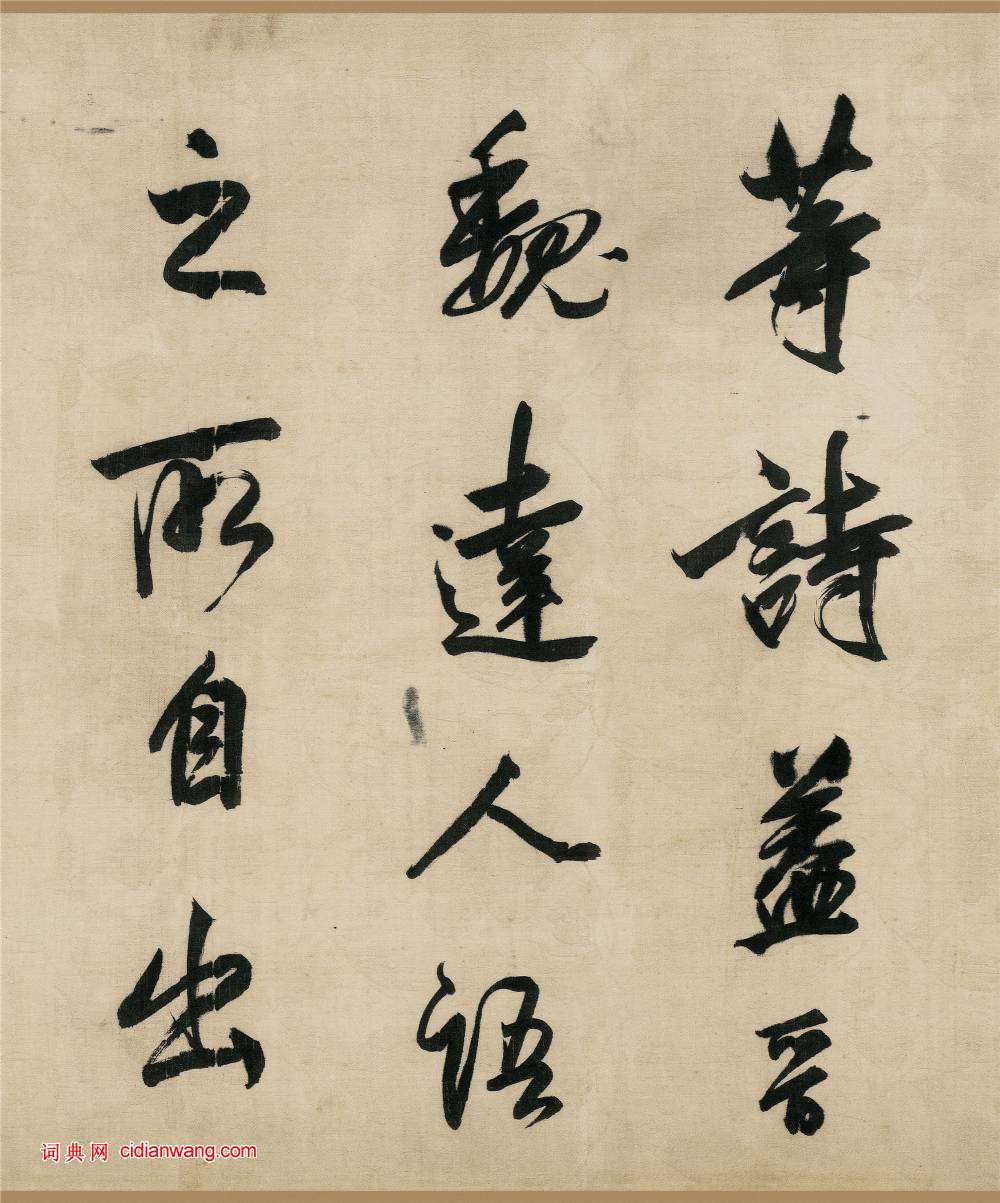 等詩蓋晉
魏達人語
之所自出
词典网 cidianwang.com